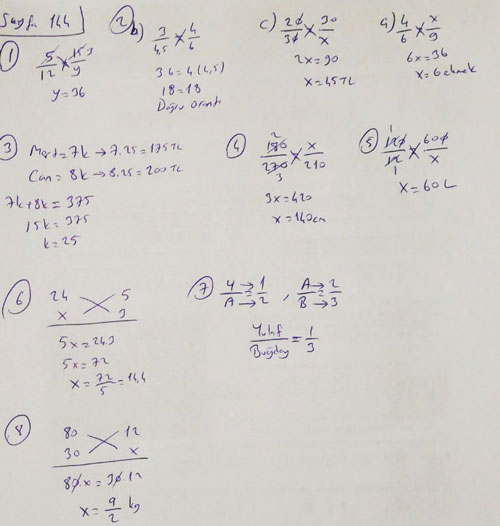 Sayfa 144
1
5/12 = 15 3/y
y = 36
2
b) 3/4,5 4/6
3.6 = 4(4,5)
18 = 18
Doğru orantı
c) 20/30 30/x
2x = 90
x = 45 TL
a) 4/6 x/9
6x = 36
x = 6 ekmek
3
Mert = 7k → 7.25 = 175 TL
Can = 8k → 8.25 = 200 TL
7k + 8k = 375
15k = 375
k = 25
4
2
180/270 x/210
3
3x = 420
x = 140 cm
5
1
120/12 600/x
1
x = 60 L
6
24 5
x 3
5x = 24.3
5x = 72
x = 72/5 = 14,4
7
Y/A → 1/2 , A/B → 2/3
Yulaf/Buğday = 1/3
8
80 12
30 x
80.x = 30.12
x = 9/2 kg